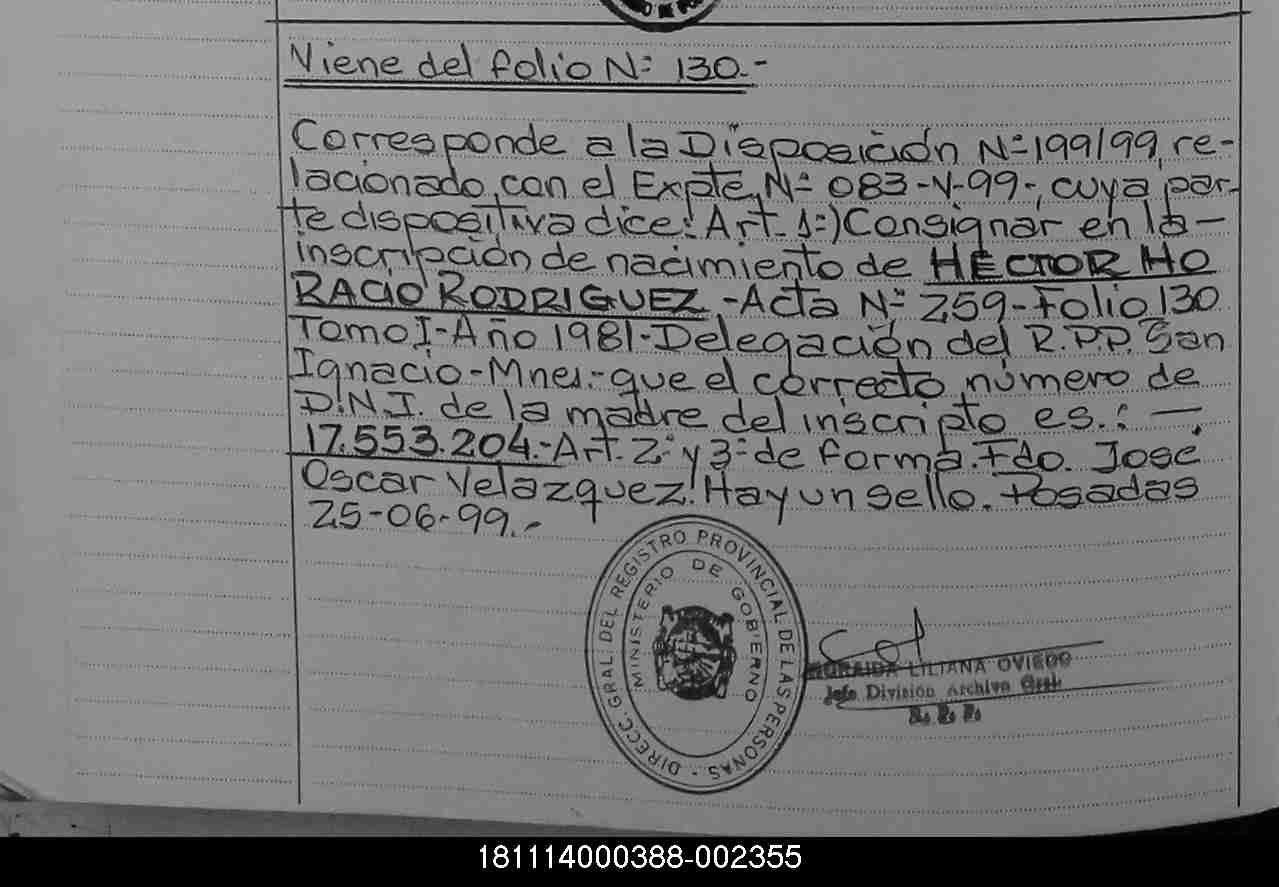 Viene del folio Nº 130.-
Corresponde a la Disposición Nº 199/99, re-
lacionado con el Expte. Nº 083-V-99-, cuya par-
te dispositiva dice: Art. 1º) Consignar en la -
inscripción de nacimiento de HECTOR HO
RACIO RODRIGUEZ - Acta Nº 259 - Folio 130
Tomo I - Año 1981 - Delegación del R.P.P. San
Ignacio - Mnes.- que el correcto número de
D.N.I. de la madre del inscripto es.: —
17.553.204.- Art. 2º y 3º de forma. Fdo. José
Oscar Velazquez. Hay un sello. Posadas
25-06-99.-
DIRECC. GRAL DEL REGISTRO PROVINCIAL DE LAS PERSONAS -
MINISTERIO DE GOBIERNO
LILIANA OVIEDO
Jefe División Archivo Gral.
R. P. P.
181114000388-002355